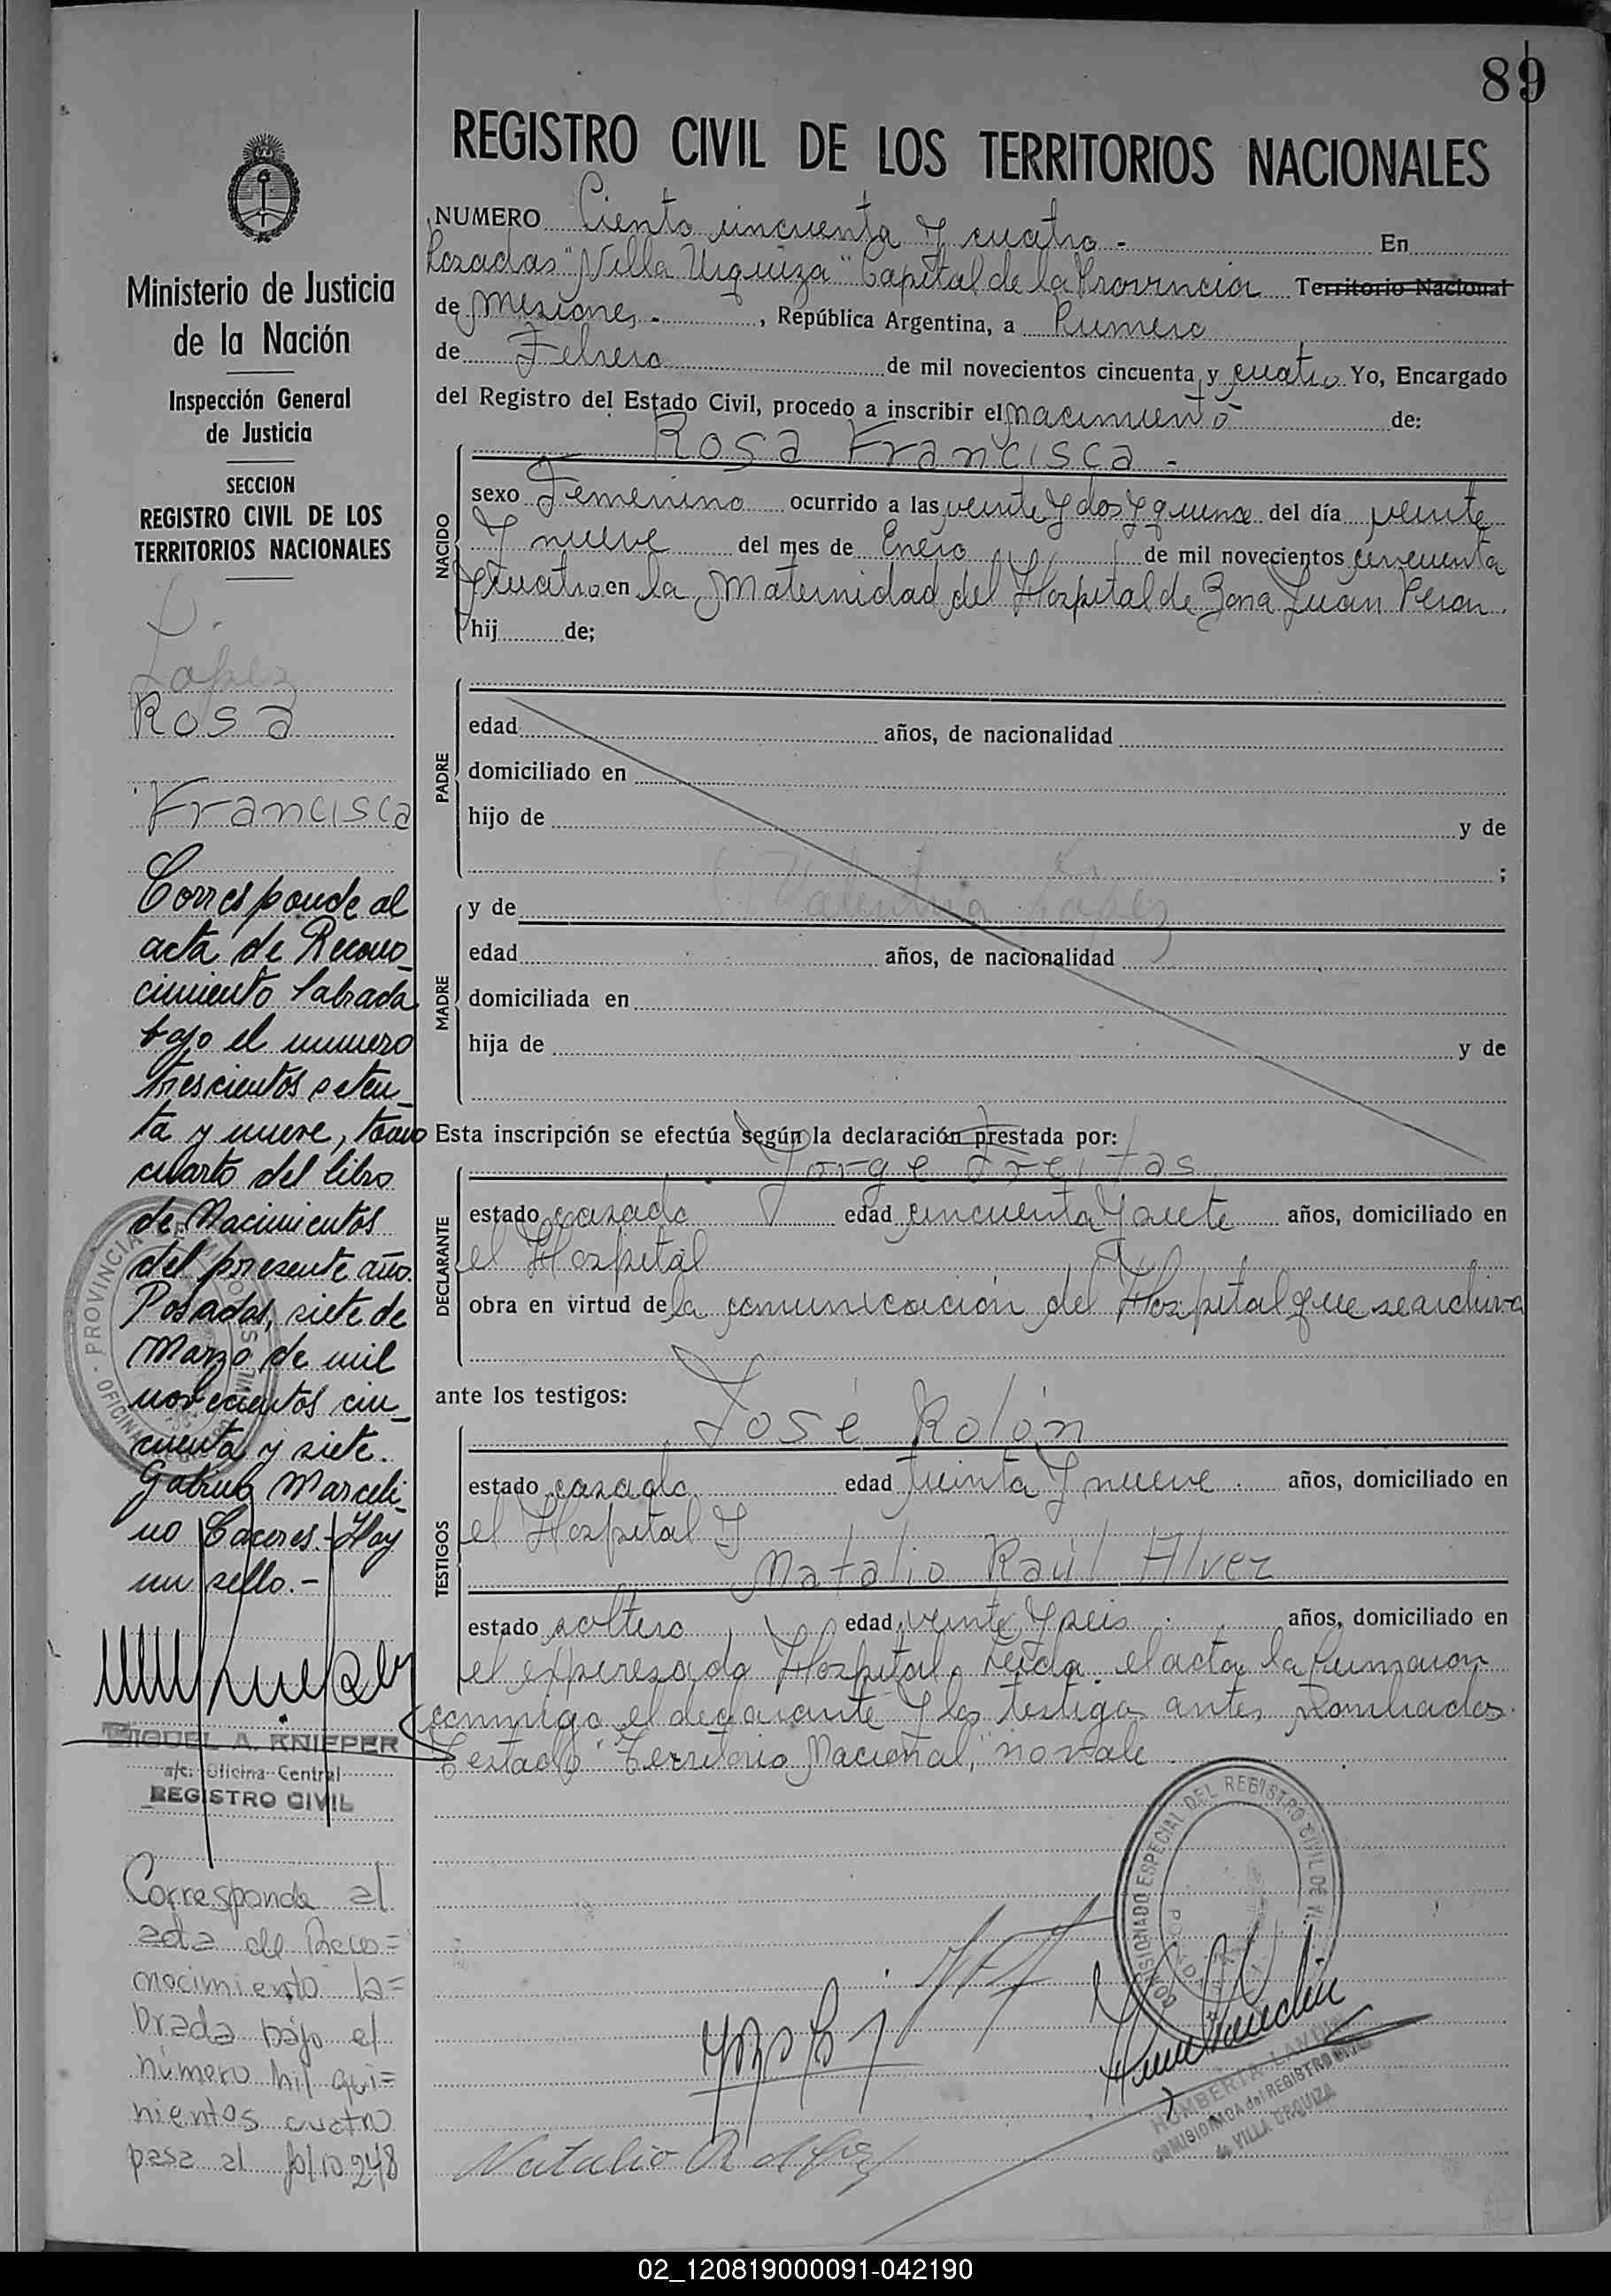 89
REGISTRO CIVIL DE LOS TERRITORIOS NACIONALES
NUMERO Ciento cincuenta y cuatro - En
Posadas "Villa Urquiza" Capital de la Provincia Territorio Nacional
de Misiones - , República Argentina, a Primero
de Febrero de mil novecientos cincuenta y cuatro Yo, Encargado
del Registro del Estado Civil, procedo a inscribir el nacimiento de:
NACIDO
Rosa Francisca -
sexo Femenino ocurrido a las veinte y dos y quince del día veinte
y nueve del mes de Enero de mil novecientos cincuenta
y cuatro en la Maternidad del Hospital de Zona Juan Peron.
hij de;
PADRE
edad años, de nacionalidad
domiciliado en
hijo de y de
;
MADRE
y de Valentina Lopez
edad años, de nacionalidad
domiciliada en
hija de y de
Esta inscripción se efectúa según la declaración prestada por:
DECLARANTE
Jorge Freitas
estado casado edad cincuenta y siete años, domiciliado en
el Hospital
obra en virtud de la comunicación del Hospital que se archiva
ante los testigos:
TESTIGOS
José Rolón
estado casado edad treinta y nueve. años, domiciliado en
el Hospital y
Natalio Raúl Alvez
estado soltero edad veinte y seis. años, domiciliado en
el expresado Hospital. Leida el acta la firmaron
conmigo el declarante y los testigos antes nombrados.
Testado "Territorio Nacional," no vale.
COMISIONADO ESPECIAL DEL REGISTRO CIVIL DE
HUMBERTO LANDI
COMISIONADA del REGISTRO CIVIL
de VILLA URQUIZA
Natalio R Alvez
Ministerio de Justicia
de la Nación
Inspección General
de Justicia
SECCION
REGISTRO CIVIL DE LOS
TERRITORIOS NACIONALES
Lopez
Rosa
Francisca
Corresponde al
acta de Recono-
cimiento labrada
bajo el numero
trescientos seten-
ta y nueve, tomo
cuarto del libro
de Nacimientos
del presente año.
Posadas, siete de
Marzo de mil
novecientos cin-
cuenta y siete.
Gabriel Marceli-
no Caceres.- Hay
un sello.-
MIGUEL A. KNIEPER
a/c. Oficina Central
REGISTRO CIVIL
Corresponde al
acta de Reco=
nocimiento la=
brada bajo el
número mil qui=
nientos cuatro
pasa al folio 248
02_120819000091-042190